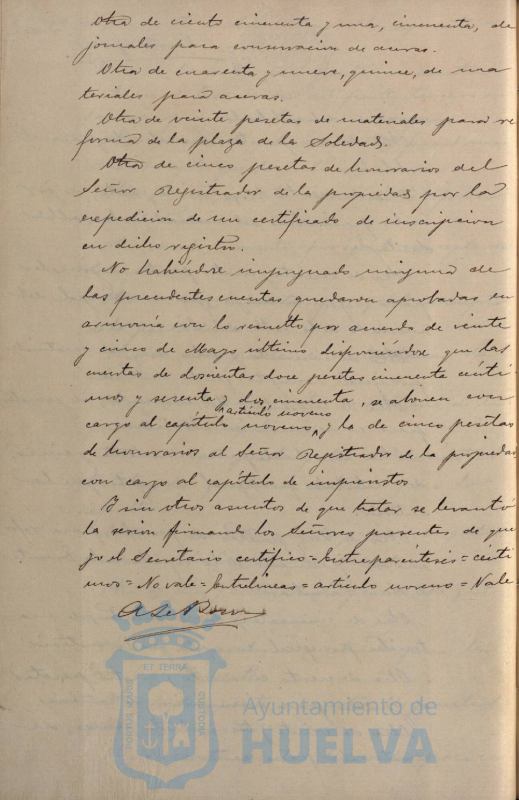 Otra de ciento cincuenta y una, cincuenta, de
jornales para conservacion de aceras.
Otra de cuarenta y nueve, quince, de ma
teriales para aceras.
Otra de veinte pesetas de materiales para re
forma de la plaza de la Soledad.
Otra de cinco pesetas de honorarios del
Señor Registrador de la propiedad por la
expedicion de un certificado de inscripcion
en dicho registro.
No habiéndose impugnado ninguna de
las precedentes cuentas quedaron aprobadas en
armonía con lo resuelto por acuerdo de veinte
y cinco de Mayo último disponiéndose que las
cuentas de doscientas doce pesetas cincuenta cénti
mos y sesenta y dos cincuenta, se abonen con
artículo noveno
cargo al capítulo noveno, y la de cinco pesetas
de honorarios al Señor Registrador de la propiedad
con cargo al capítulo de imprevistos
Y sin otros asuntos de que tratar se levantó
la sesion firmando los Señores presentes de que
yo el Secretario certifico = Entreparéntesis = cénti
mos = No vale = Entrelíneas = artículo noveno = Vale
ET TERRÆ
PORTUS MARIS
CUSTODIA
Ayuntamiento de
HUELVA